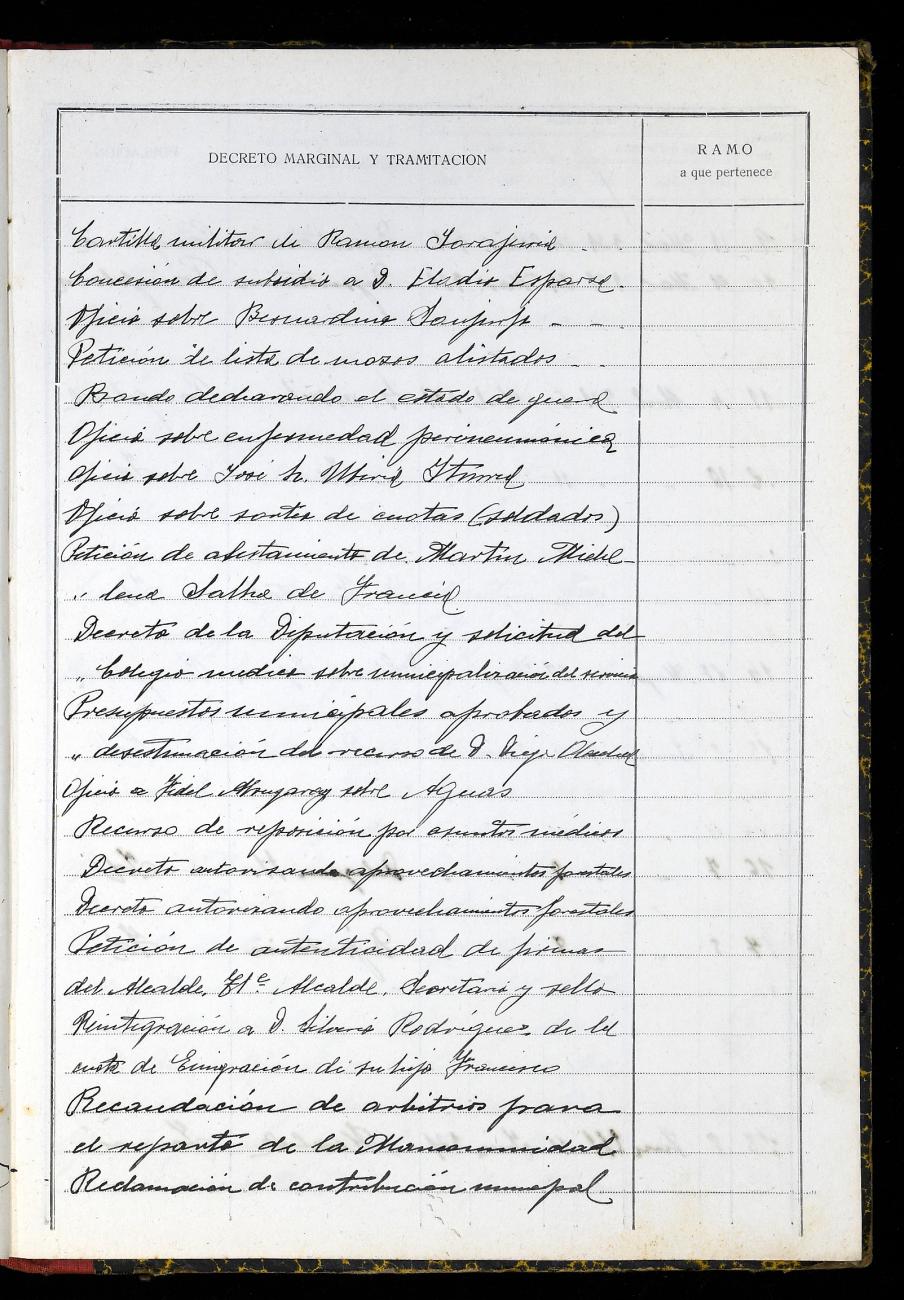 DECRETO MARGINAL Y TRAMITACION
RAMO
a que pertenece
Cartilla militar de Ramon
Concesión de subsidio a D. Eladio Esparza.
Oficio sobre Bernardino
Petición de lista de mozos alistados
Bando declarando el estado de guerra
Oficio sobre enfermedad perineumónica
Oficio sobre José
Oficio sobre sorteo de cuotas (soldados)
Petición de alistamiento de Martin Michel
" lena Salha de Francia
Decreto de la Diputación y solicitud del
" Colegio medico sobre municipalización del servicio
Presupuestos municipales aprobados y
" desestimación del recurso de D.
Oficio a Fidel sobre Aguas
Recurso de reposición por asuntos médicos
Decreto autorizando aprovechamientos forestales
Decreto autorizando aprovechamientos forestales
Petición de autenticidad de firmas
del Alcalde, Tte Alcalde, Secretario y sello
Reintegración a D. Silverio Rodríguez de la
cuota de Emigración de su hijo Francisco
Recaudación de arbitrios para
el reparto de la Mancomunidad
Reclamación de contribución municipal